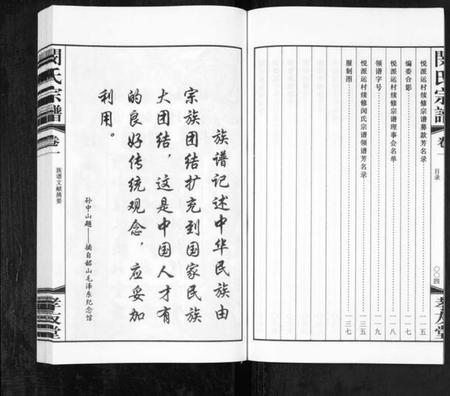 閔氏宗譜
卷一
目录
悦派运村续修宗谱募款芳名录 一一五
编委合影 一一七
悦派运村续修宗谱理事会名单 一一八
领谱字号 一一九
悦派运村续修闵氏宗谱领谱芳名录 一三五
服制图 一三七
〇〇四
孝友堂
族谱记述中华民族由
宗族团结扩充到国家民族
大团结，这是中国人才有
的良好传统观念，应妥加
利用。
孙中山题——摘自韶山毛泽东纪念馆
閔氏宗譜
卷一
族谱文献摘要
孝友堂